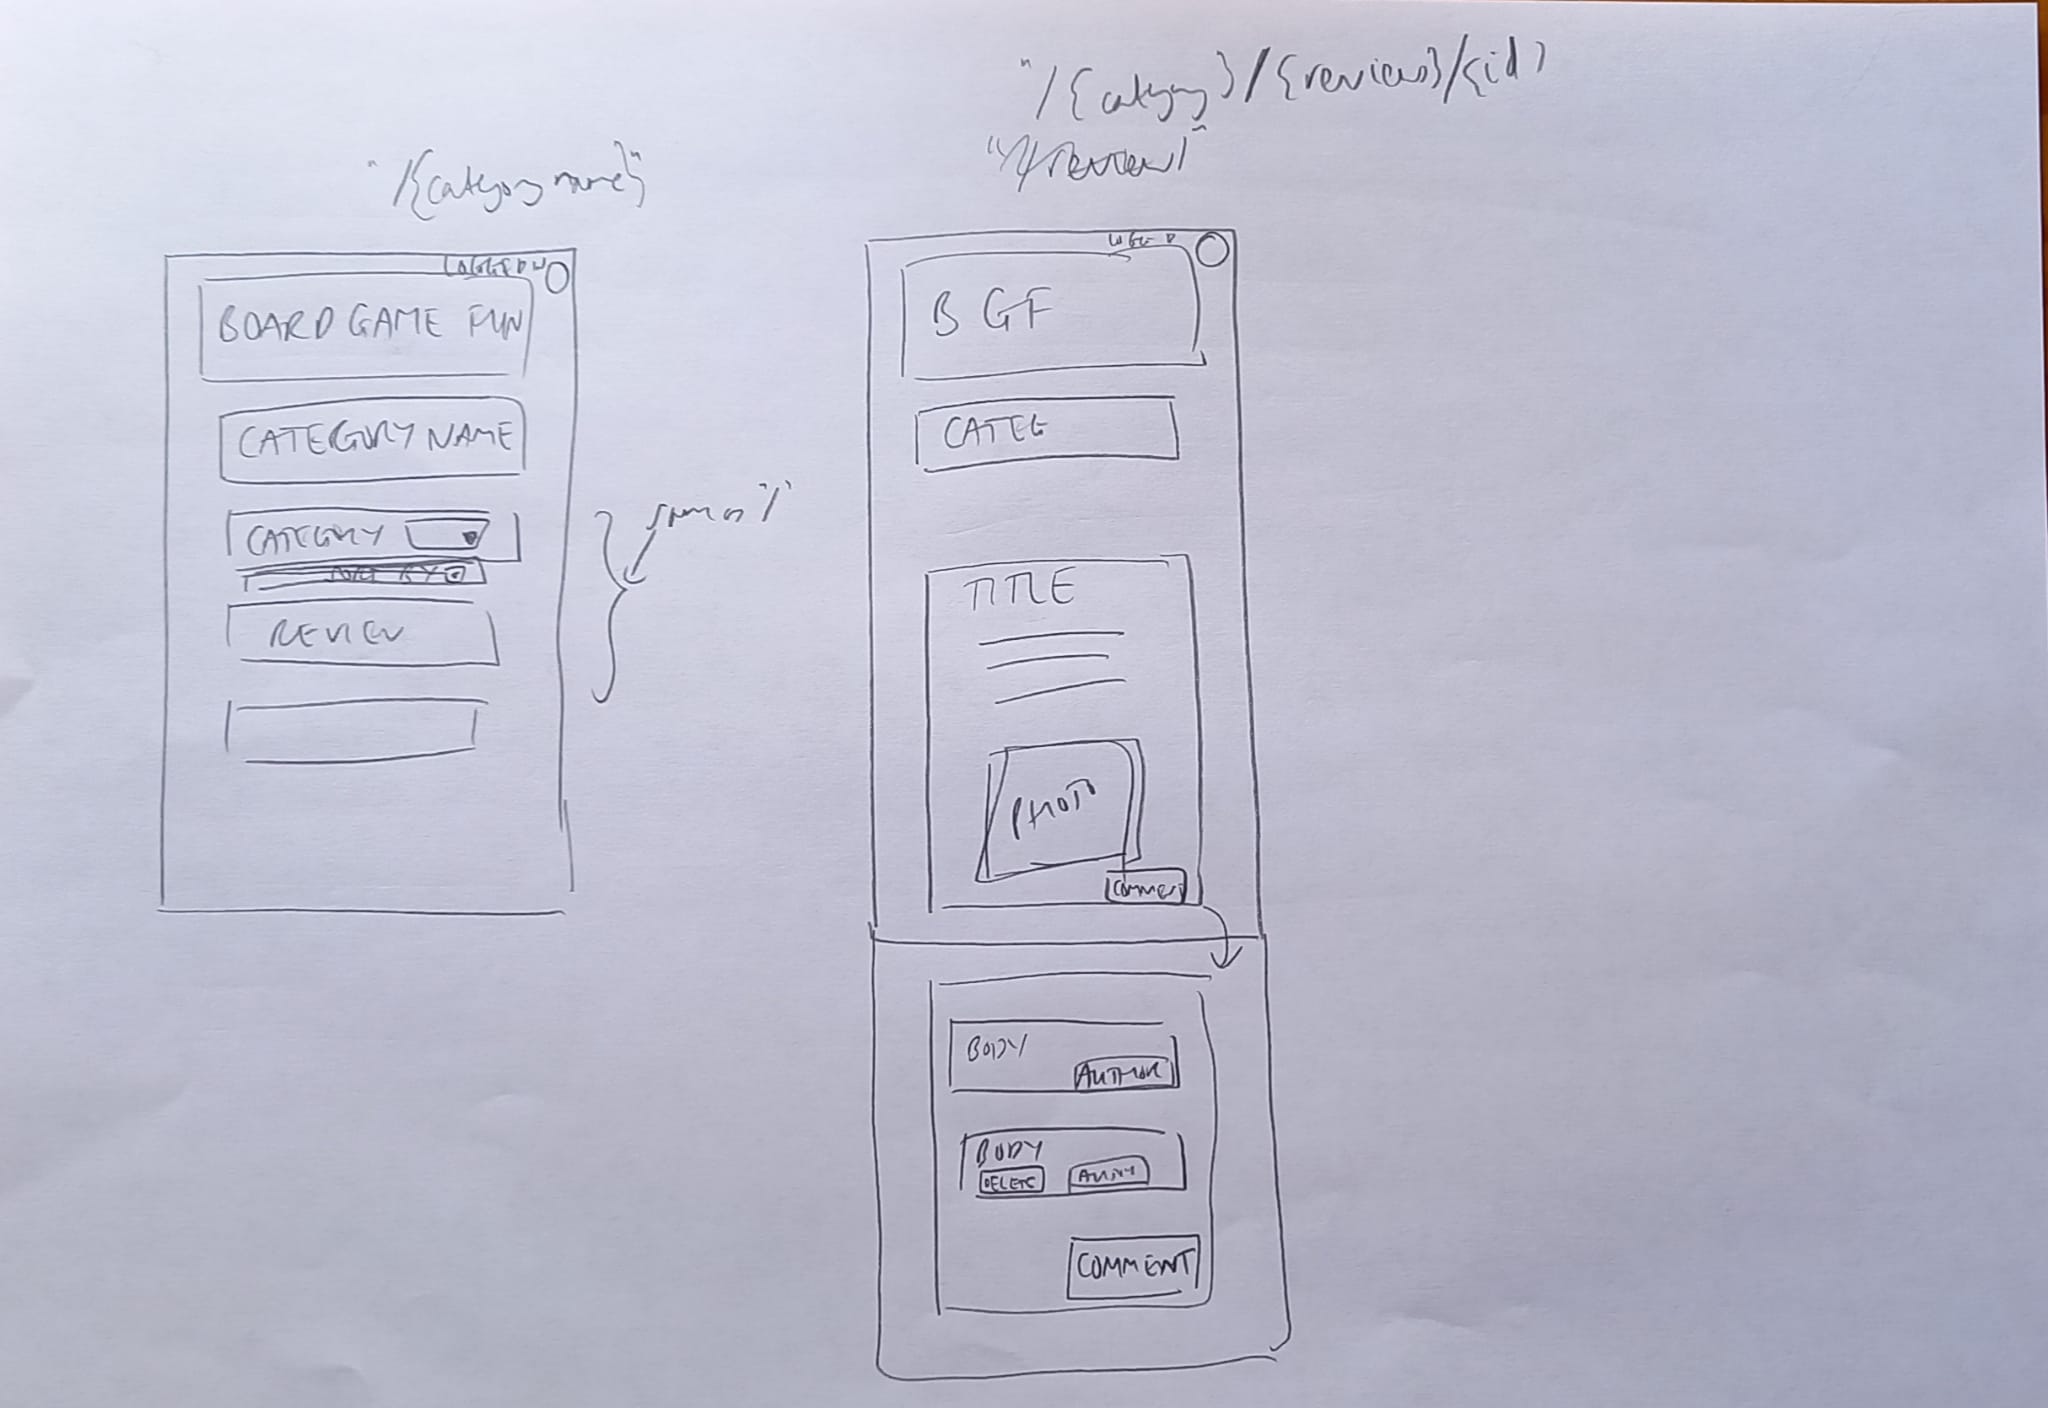 "/{category name}"
LOGGED IN
BOARD GAME FUN
CATEGORY NAME
CATEGORY
SORT BY
REVIEW
same as "/"
"/{category}/{review}/{id}
"/review/"
LOGGED
BGF
CATEG
TITLE
PHOTO
COMMENT
BODY
AUTHOR
BODY
DELETE
COMMENT